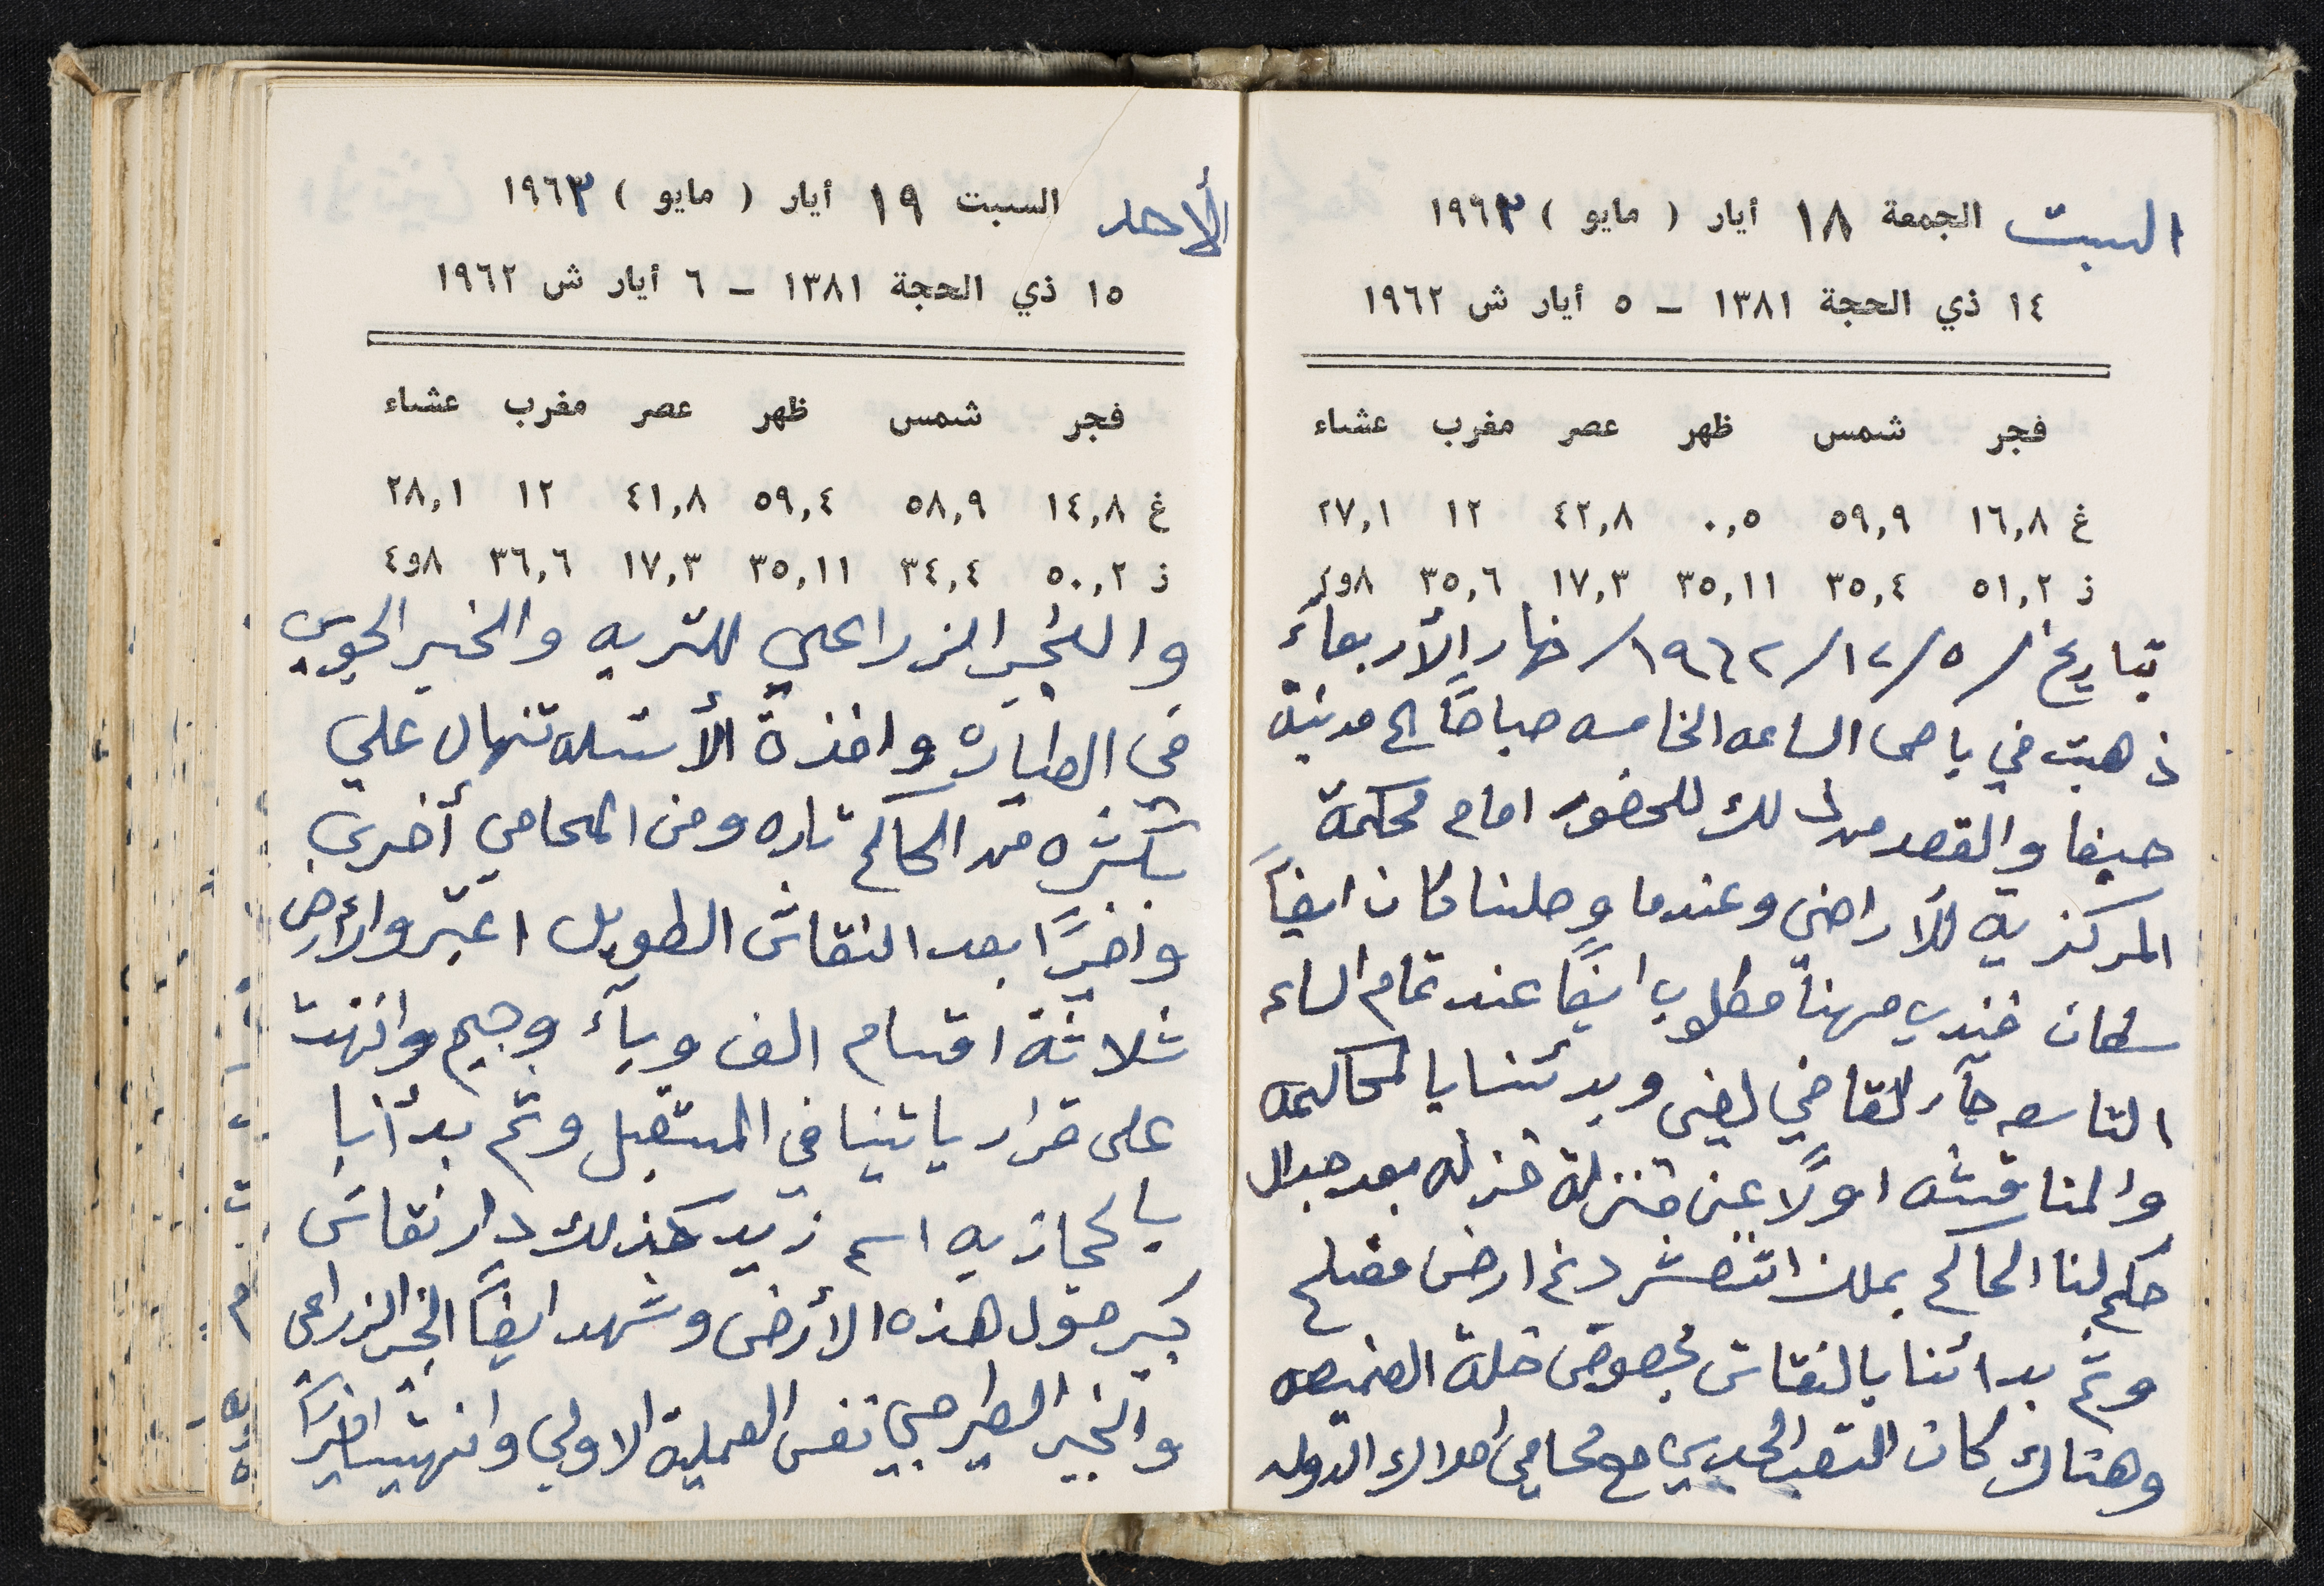 السبت الجمعة ١٨ أيار ( مايو ) ١٩٦٣
١٤ ذي الحجة ١٣٨١ – ٥ أيار ش ١٩٦٢
فجر شمس ظهر عصر مغرب عشاء
غ ١٦,٨ ٥٩,٩ ٠,٥ ٤٢,٨ ١٢ ٢٧,١
ز ٥١,٢ ٣٥,٤ ٣٥,١١ ١٧,٣ ٣٥,٦ ٨و٤
بتاريخ /٥/١٢/١٩٦٢/ نهار الأربعاء
ذهبت في باص الساعه الخامسه صباحاً الى مدينة
حيفا والقصد من ذلك للحضور امام محكمة
المركزيه للأراضي وعندما وصلنا كان ايضاً
سلمان فندي مهنا مطلوب ايضاً عند تمام الساعه
التاسعه جآء القاضي لفي وبدئنا بالمحاكمه
والمناقشه اولاً عن منزلة غزله بعد جدال
حكم لنا الحاكم بملك اتنعشر دنم ارض مفتلح
وثم بدائنا بالنقاش بخصوص خلة
وهناك كان التعب الجدي مع محامي املاك الدوله
الأحد السبت ١٩ أيار ( مايو ) ١٩٦٣
١٥ ذي الحجة ١٣٨١ – ٦ أيار ش ١٩٦٢
فجر شمس ظهر عصر مغرب عشاء
غ ١٤,٨ ٥٨,٩ ٥٩,٤ ٤١,٨ ١٢ ٢٨,١
ز ٥٠,٢ ٣٤,٤ ٣٥,١١ ١٧,٣ ٣٦,٦ ٨و٤
والخبير الزراعي للتربه والخبير الجوي
في الطياره واخذة الأسئله تنهال علي
بكثره من الحاكم تاره ومن المحامي أخرى
واخيرًا بعد النقاش الطويل اعتبروا الأرض
ثلاثة اقسام الف وبآء وجيم وانتهت
على قرار ياتينا في المستقبل وثم بدأنا با
بالحجازيه اسم زيد كذلك دار نقاش
كبير حول هذه الأرض وشهد ايضاً الخبير الزراعي
والخبير نفس العملية الاولى وانتهت اخيراً